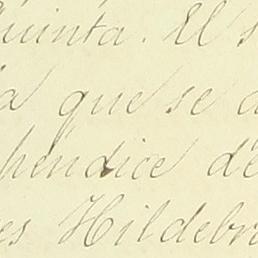 uinta. El s
a que se d
pendice de
es Hildebr